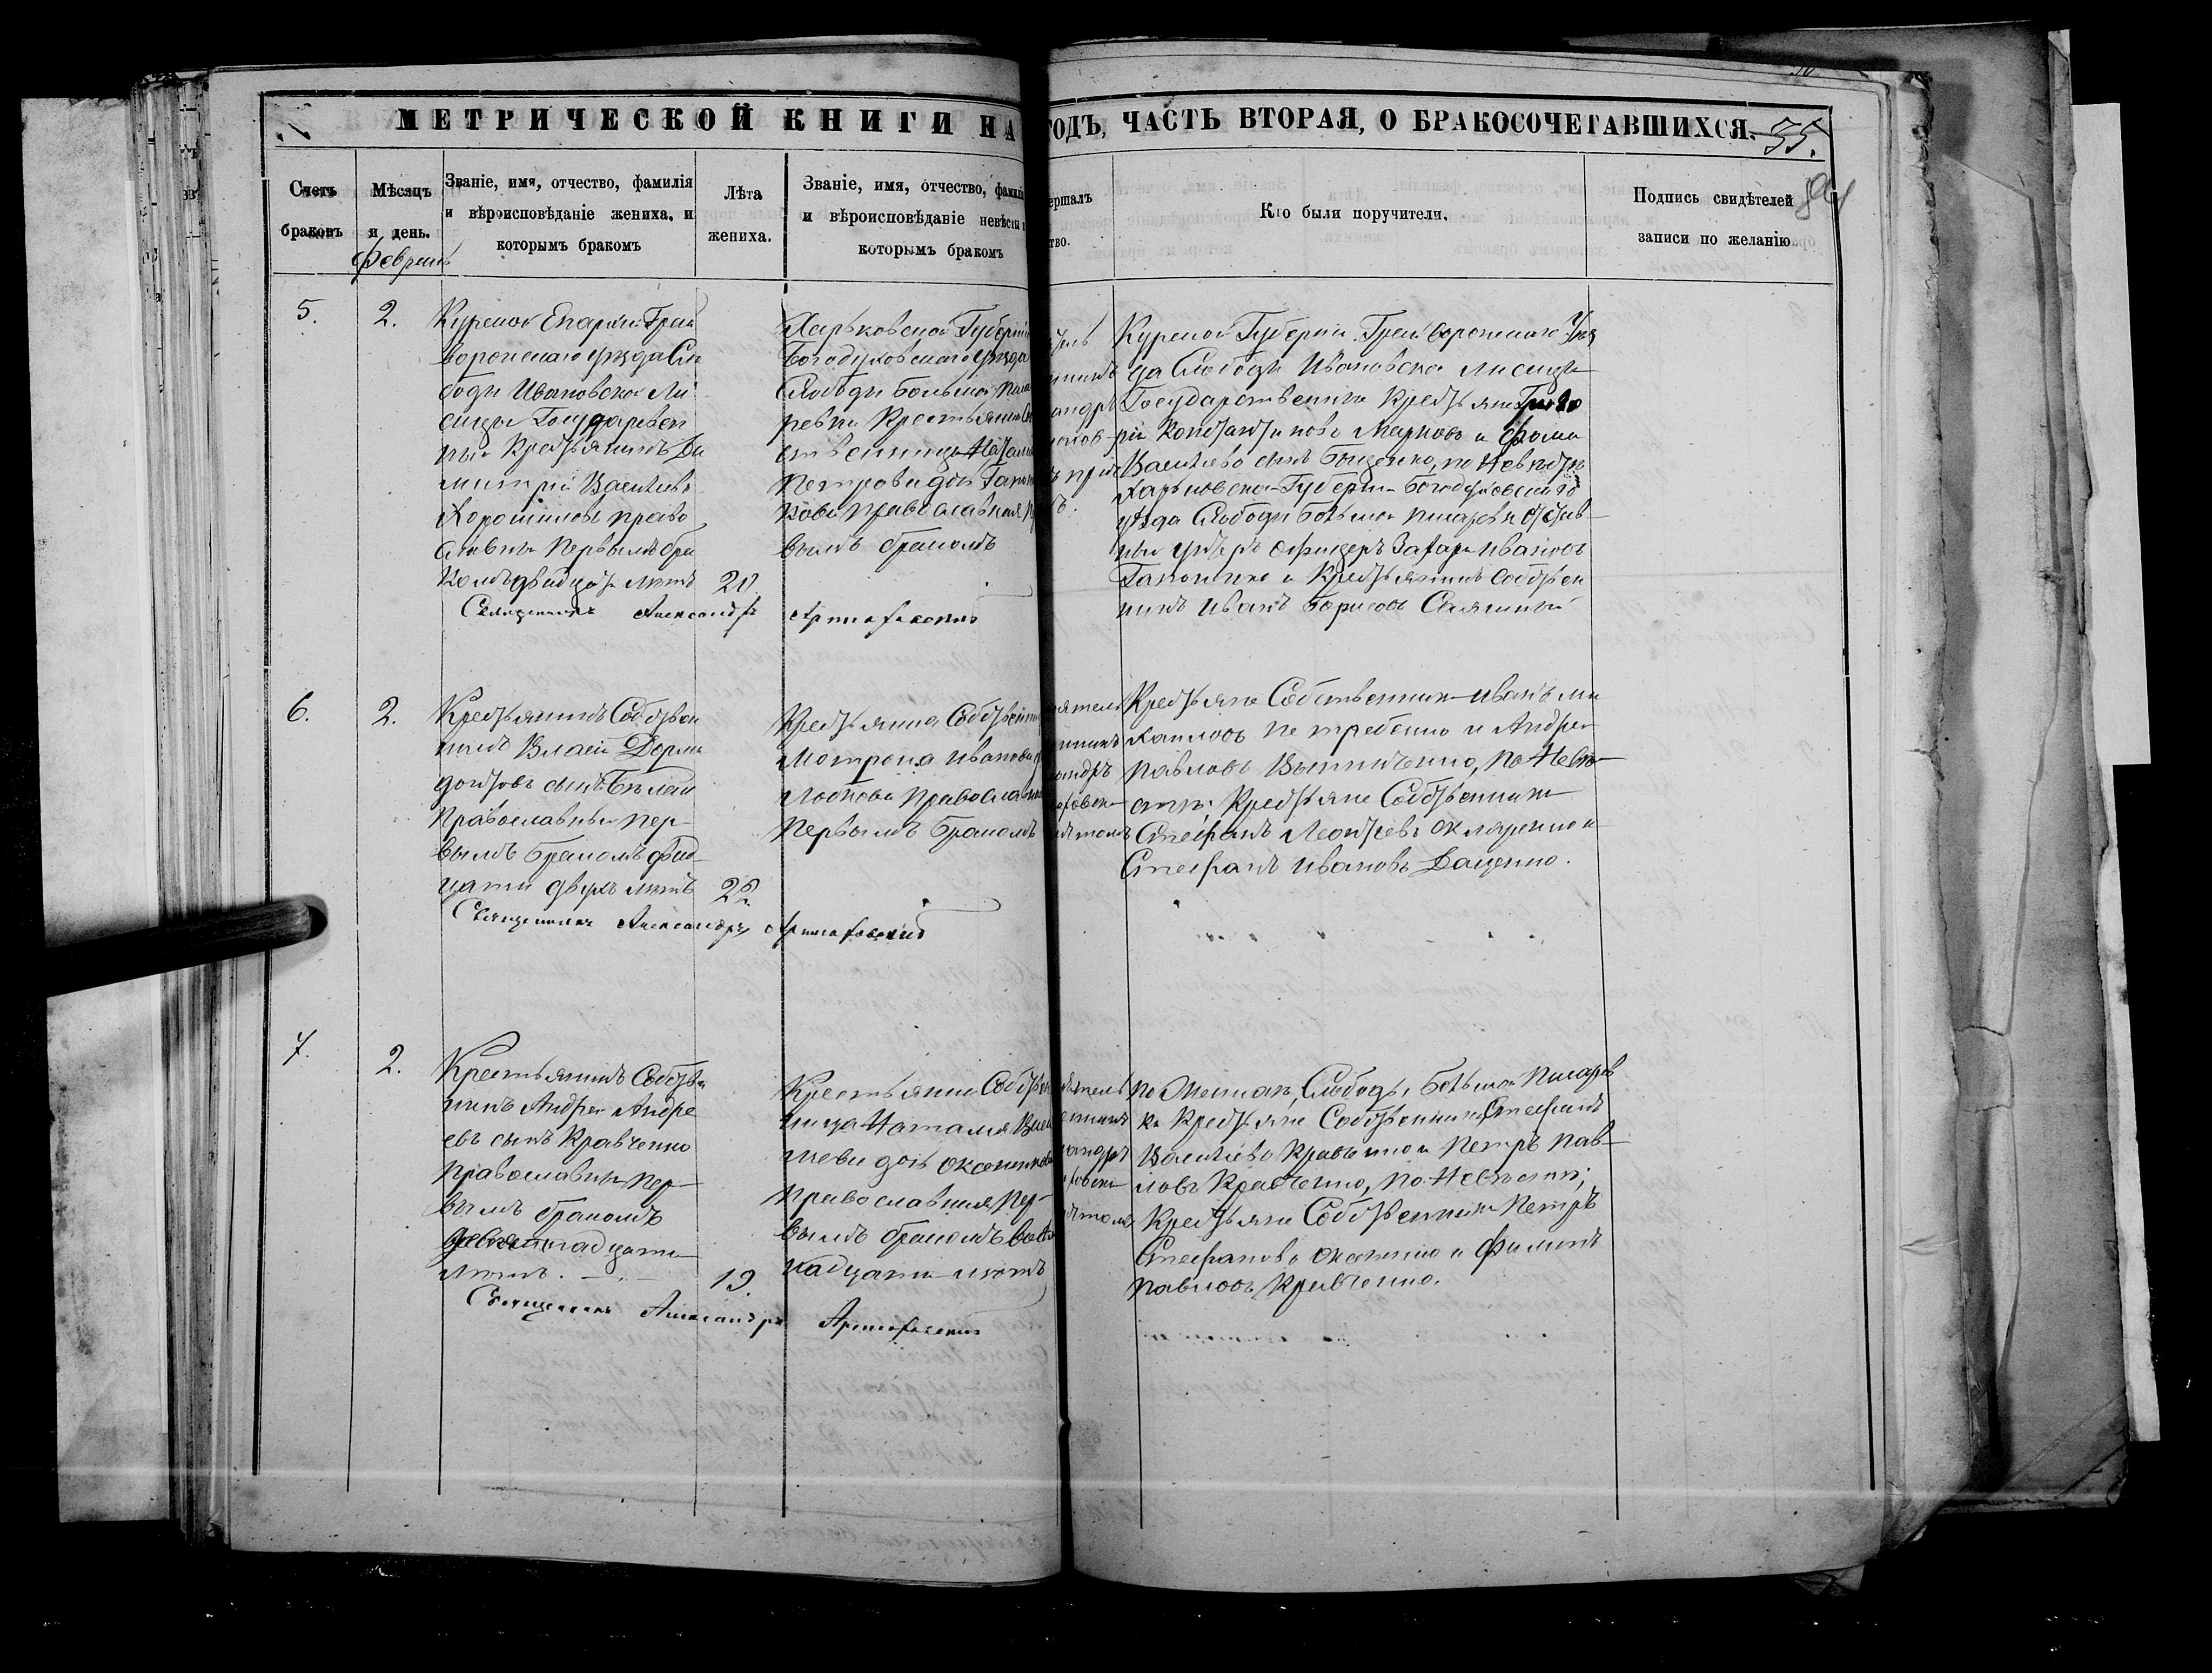 МЕТРИЧЕСКОЙ КНИГИ НА
ГОДЪ, ЧАСТЬ ВТОРАЯ, О БРАКОСОЧЕТАВШИХСЯ.
35.
Счетъ
браковъ
Мѣсяцъ
и день.
Званіе, имя, отчество, фамилія
и вѣроисповѣданіе жениха, и
которымъ бракомъ
Лѣта
жениха.
Званіе, имя, отчество, фамилія
и вѣроисповѣданіе невѣсты
которымъ бракомъ
ершалъ
тво.
Кто были поручители.
Подпись свидѣтелей
записи по желанію
Февраль
5.
2.
Курской Епархіи Грай
воронскаго уѣзда Сло
боды Ивановской Ли
сицы Государствен
ный Крестьянинъ Ди
митрій Васильевъ
Хорошиловъ право
славный первымъ бра
комъ двадцать лѣтъ
20
Харьковской Губерніи
Богодуховскаго уѣзда
Слободы Большой Писа
ревки Крестьянка Соб
ственница Наталія
Петрова дочь Гапон
кова православная
вымъ бракомъ
Курской Губерніи Грайворонскаго Уѣз
да Слободы Ивановской Лисицы
Государственные Крестьяне Григо
рій Константиновъ Марковъ и Фома
Васильевъ сынъ Бондаренко, по Невѣстѣ
Харьковской Губерніи Богодуховскаго
уѣзда Слободы Большой Писаревки Отстав
ный Унтеръ Офицеръ Захарій Ивановъ
Гапоненко и Крестьянинъ Собствен
никъ Иванъ Борисовъ
Священникъ Александръ
6.
2.
Крестьянинъ Собствен
никъ Власій Дорми
донтовъ сынъ Бѣлай
Православный пер-
вымъ бракомъ двад-
цати двухъ лѣтъ
22.
Крестьянка Собственница
Мотрона Иванова
Православная
Первымъ бракомъ
Крестьяне Собственники Иванъ Ми
хайловъ Петребенко и Андрей
Павловъ по Невѣ-
стѣ; Крестьяне Собственники
Стефанъ Леонтьевъ и
Стефанъ Ивановъ Даценко.
Священникъ Александръ
7.
2.
Крестьянинъ Собствен
никъ Андрей Андре
евъ сынъ Кравченко
Православный пер-
вымъ бракомъ
девятнадцати
лѣтъ.
19.
Крестьянка Собствен
ница Наталія Васи
льева дочь
православная пер-
вымъ бракомъ восем
надцати лѣтъ
По Женихѣ, Слободы Большой Писарев
ки Крестьяне Собственники Стефанъ
Васильевъ Кравченко и Петръ Пав-
ловъ Кравченко, по Невѣстѣ;
Крестьяне Собственники Петръ
Стефановъ и Филипъ
Павловъ Кравченко.
Священникъ Александръ